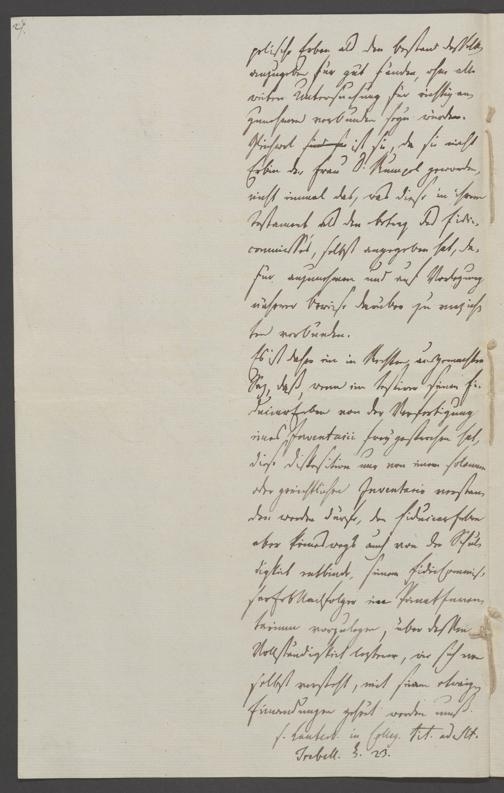 27.
pelische Erben als den bestand desselb.
anzugeben für gut fanden, ohne alle
weitere Untersuchung für richtig an-
zunehmen verbunden seyn würden.
Gleichwol ist sie, da sie nicht
Erbin der Frau D. Kumpel geworden,
nicht einmal das, was diese in ihrem
Testament als den betrag des Fidei-
commisses, selbst angegeben hat, da-
für anzunehmen und auf Vorlegung
näherer beweise darüber zu verzich-
ten verbunden.
Es ist daher ein in Rechten ausgemachter
Saz, daß, wenn ein Testirer seinen Fi-
duciarErben von der Verfertigung
eines Inventarii frey gesprochen hat,
diese Disposition nur von einem solennen
oder gerichtlichen Inventario verstan-
den werden dürfe, den Fiduciarerben
aber keineswegs auch von der Schul-
digkeit entbinde, seinem Fideicommis-
sarErbNachfolger ein Privat Inven-
tarium vorzulegen, über dessen
Vollständigkeit lezterer, wie sich von
selbst versteht, mit seinen etwaigen
Einwendungen gehört werden muß.
s. Lauterb. in Colleg. tit. ad SCt.
Trebell. §. 23.